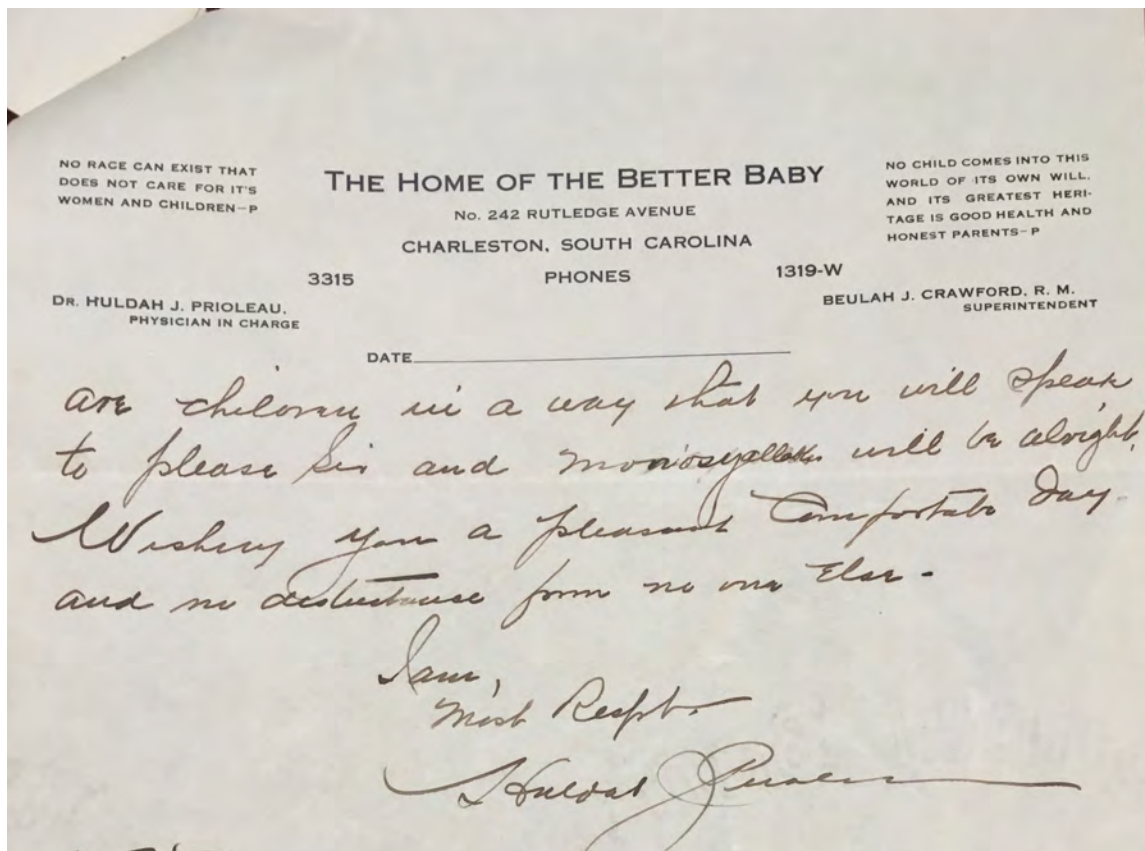 NO RACE CAN EXIST THAT
DOES NOT CARE FOR IT'S
WOMEN AND CHILDREN—P
THE HOME OF THE BETTER BABY
No. 242 RUTLEDGE AVENUE
CHARLESTON, SOUTH CAROLINA
3315 PHONES 1319-W
NO CHILD COMES INTO THIS
WORLD OF ITS OWN WILL,
AND ITS GREATEST HERI-
TAGE IS GOOD HEALTH AND
HONEST PARENTS—P
DR. HULDAH J. PRIOLEAU,
PHYSICIAN IN CHARGE
BEULAH J. CRAWFORD, R. M.
SUPERINTENDENT
DATE
are children in a way that you will speak
to please Sir and will be alright,
Wishing you a pleasant Comfortable day
and no disturbance form no one Else -
I am,
Most Respt.
Huldah J Prioleau